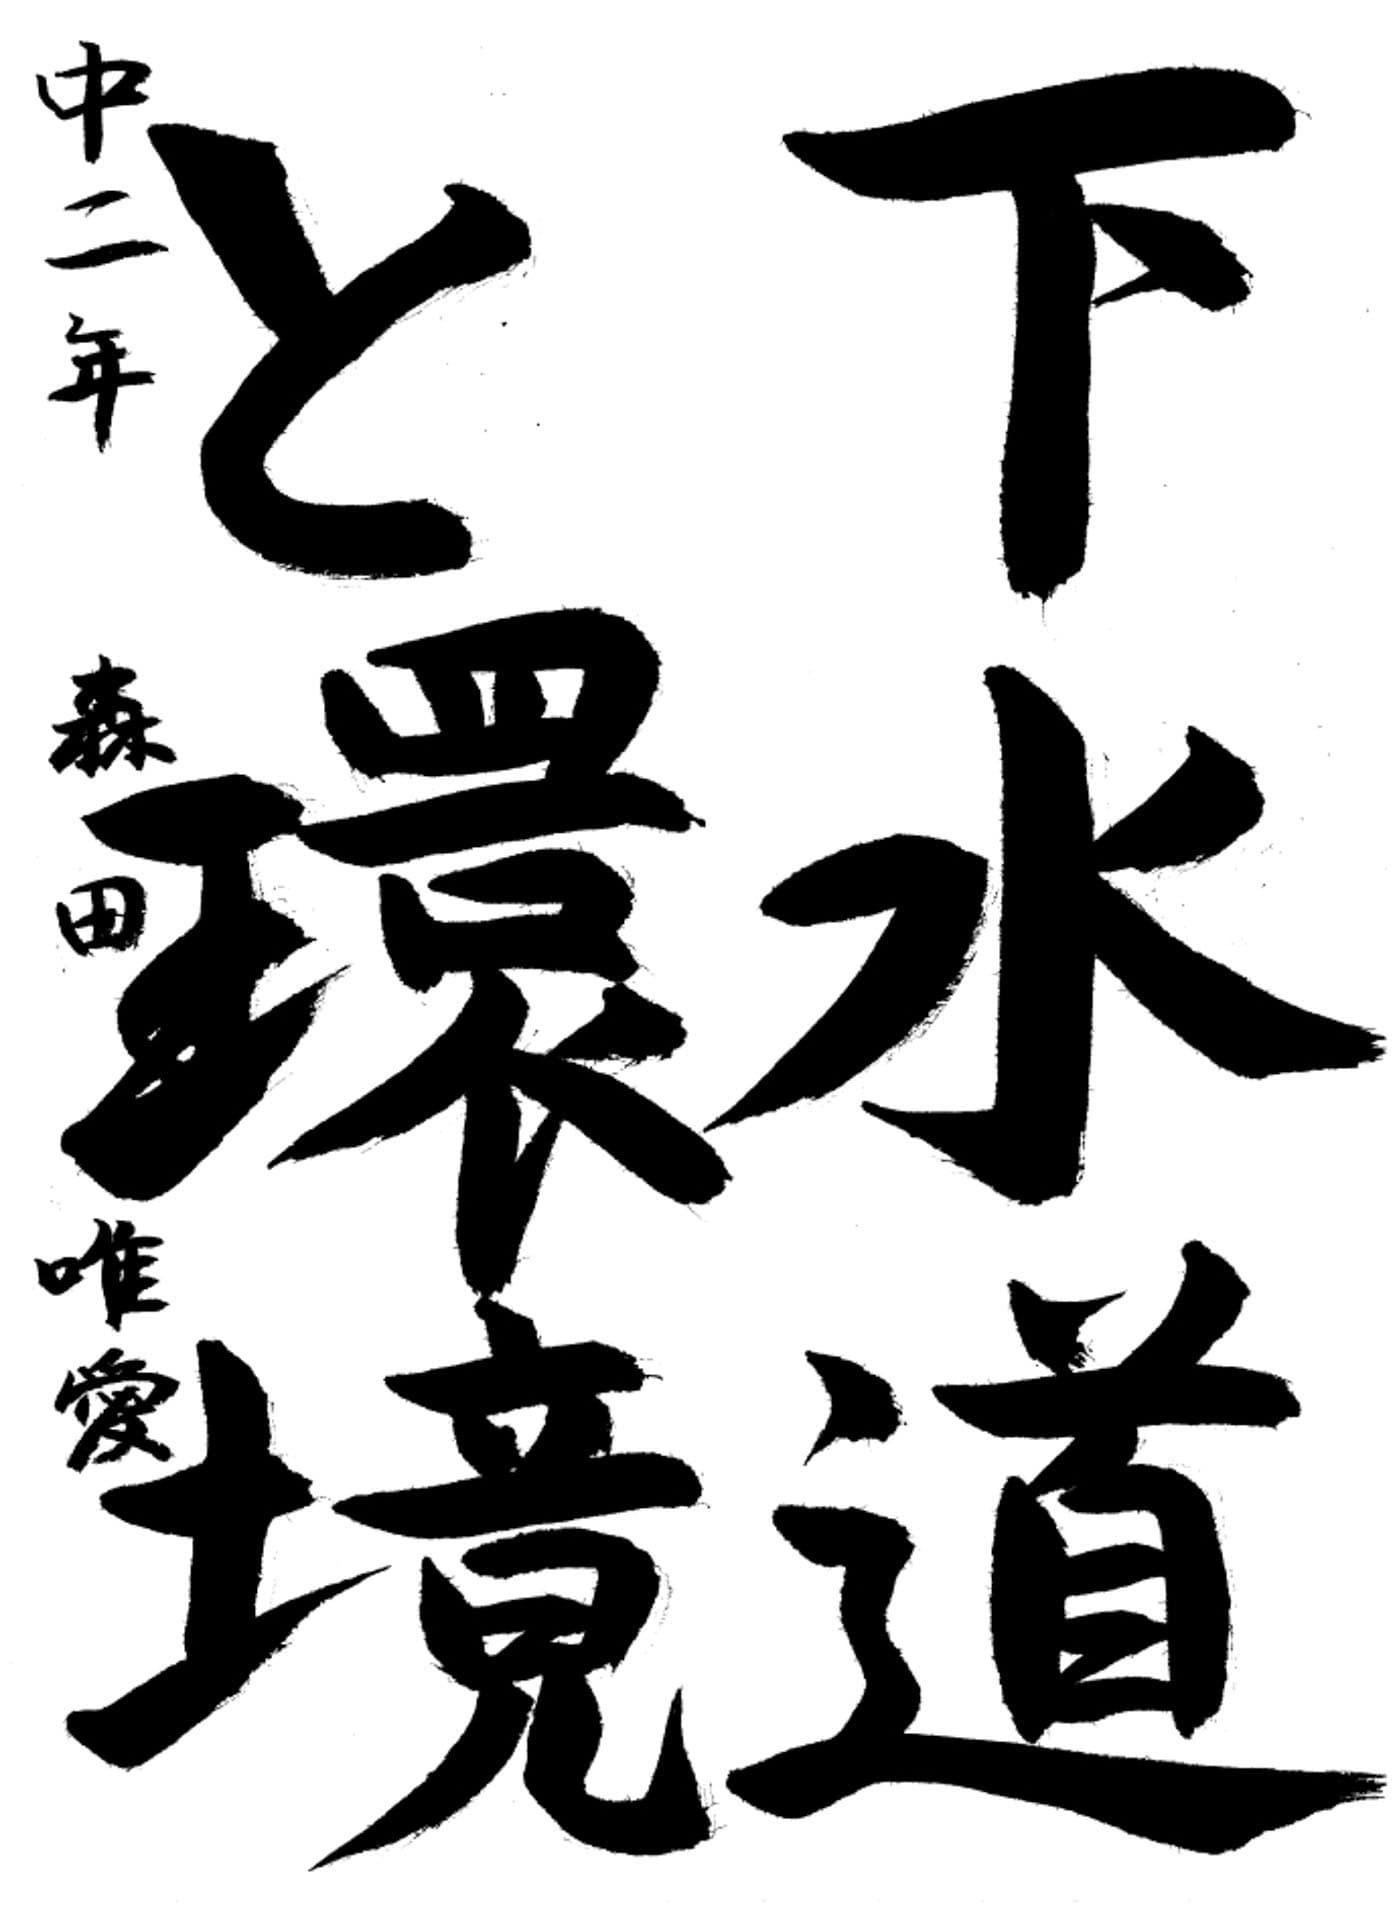 下水道
と環境
中二年 森田唯愛